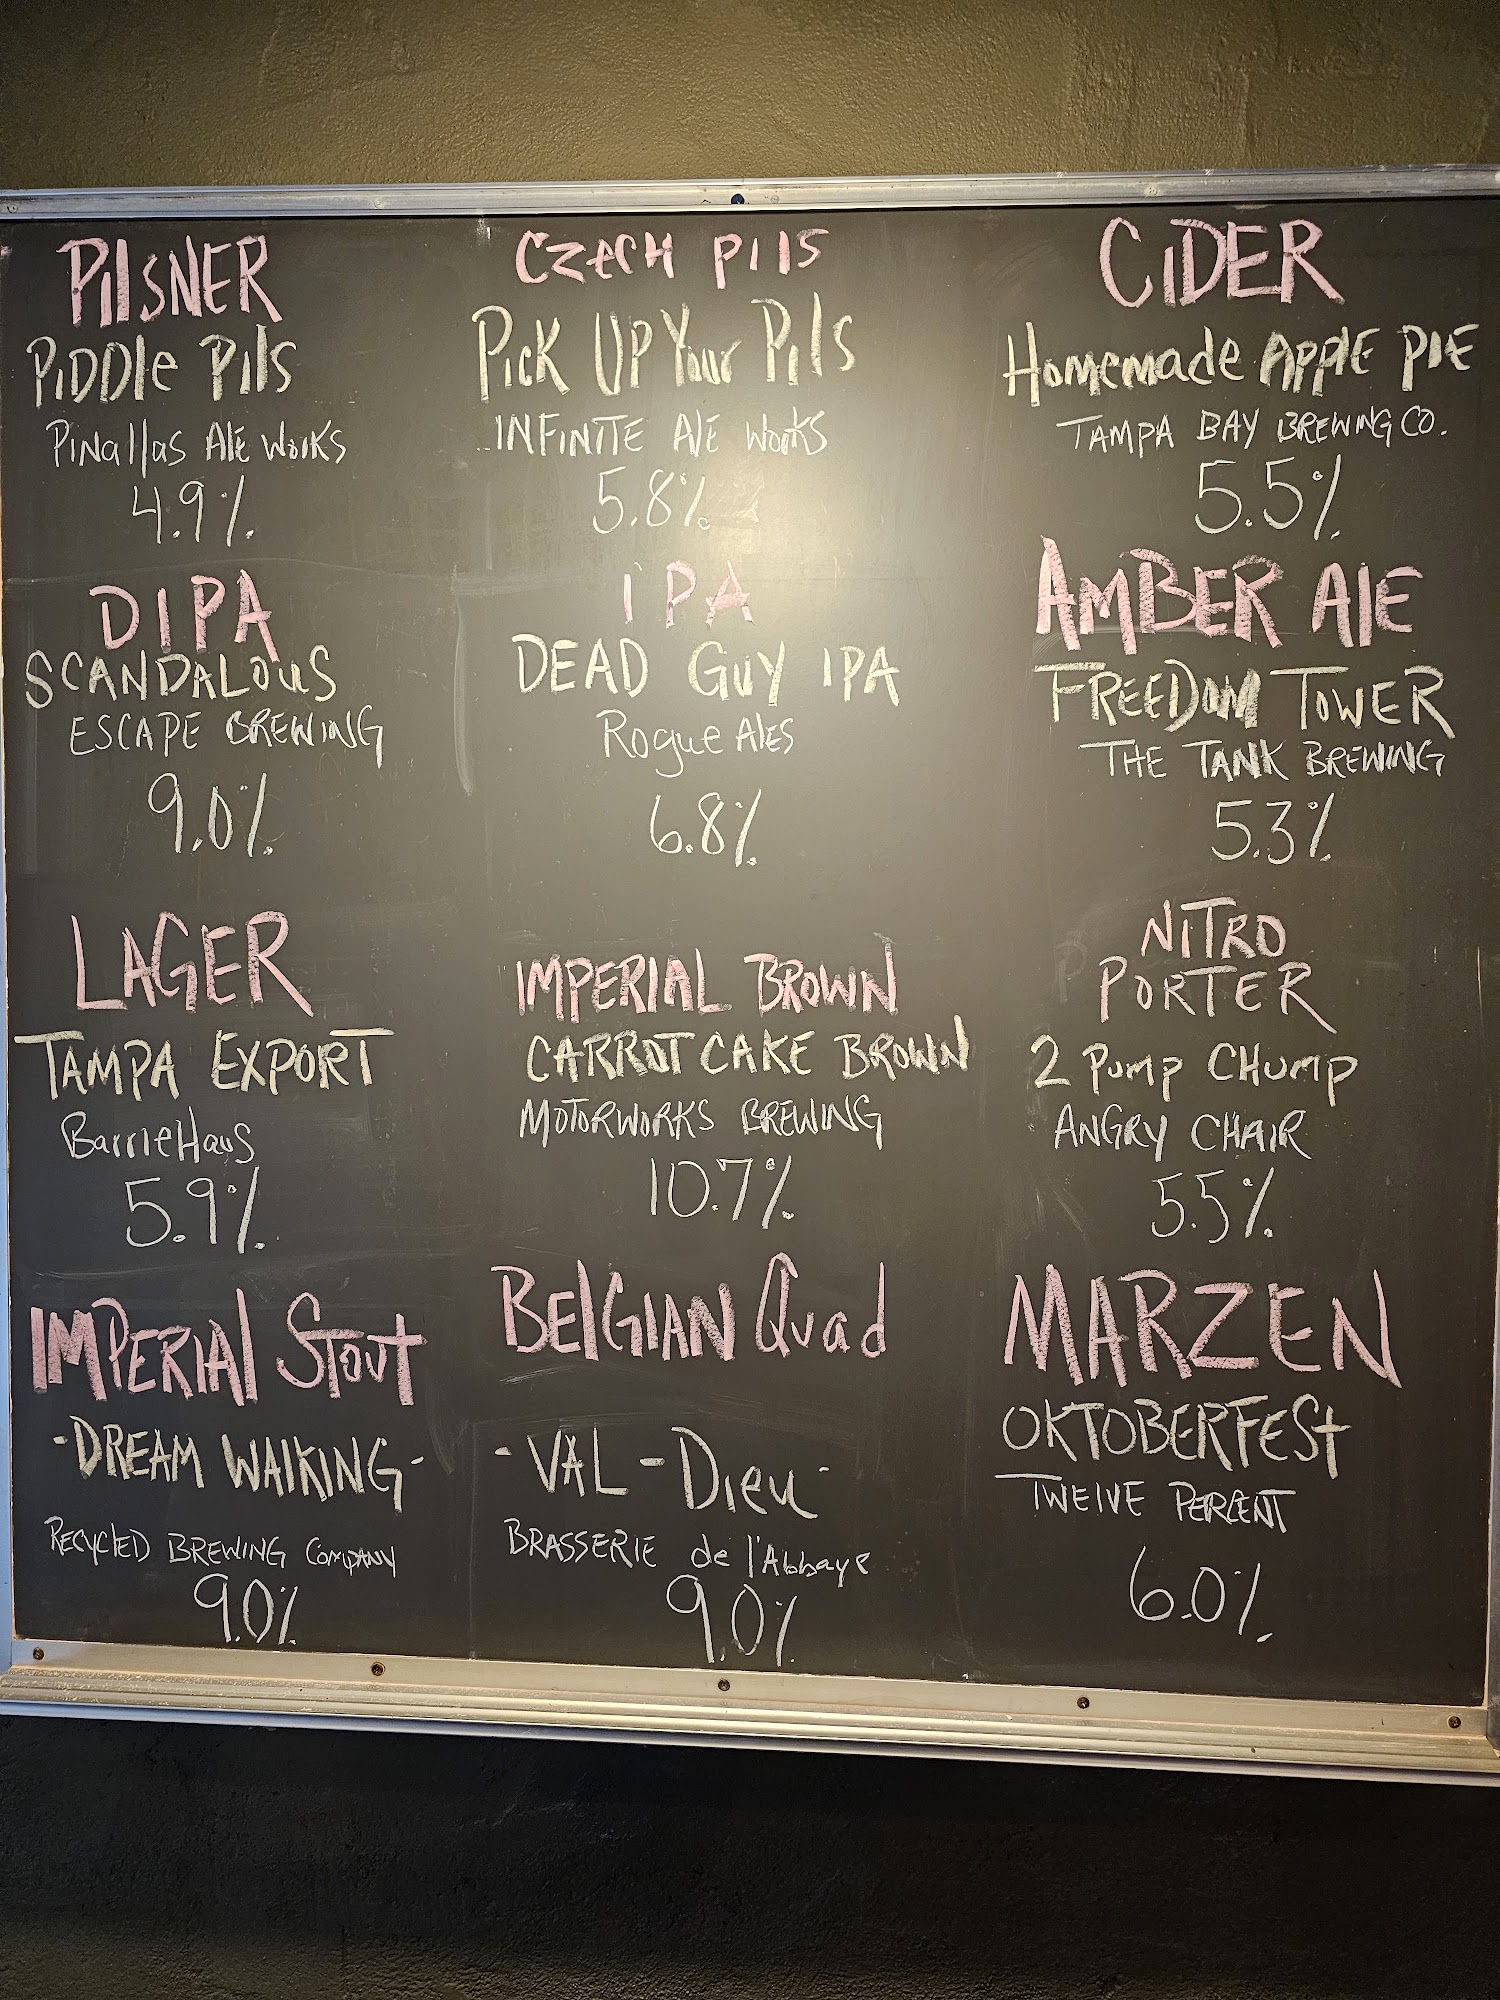 PilSNER
PiDDle Pils
Pinallas Ale Works
4.9%
CzecH Pils
Pick UP Your Pils
INFiNiTE Ale Works
5.8%
CiDER
Homemade APPlE PIE
TAMPA BAY BREWING CO.
5.5%
DIPA
SCANDALOuS
ESCAPE BREWING
9.0%
IPA
DEAD GUY IPA
Rogue Ales
6.8%
AMBER AlE
FREEDOM TOWER
THE TANK BREWING
5.3%
LAGER
TAMPA EXPORT
BarrieHaus
5.9%
IMPERIAL BROWN
CARROT CAKE BROWN
MOTORWORKS BREWING
10.7%
NITRO
PORTER
2 Pump CHump
ANGRY CHAIR
5.5%
IMPERIAl Stout
-DREAM WAlKING-
RECYClED BREWING COMPANY
9.0%
BElGIAN Quad
-VAL-Dieu-
BRASSERIE de l'Abbaye
9.0%
MARZEN
OKTOBERFESt
TWElVE PERCENT
6.0%